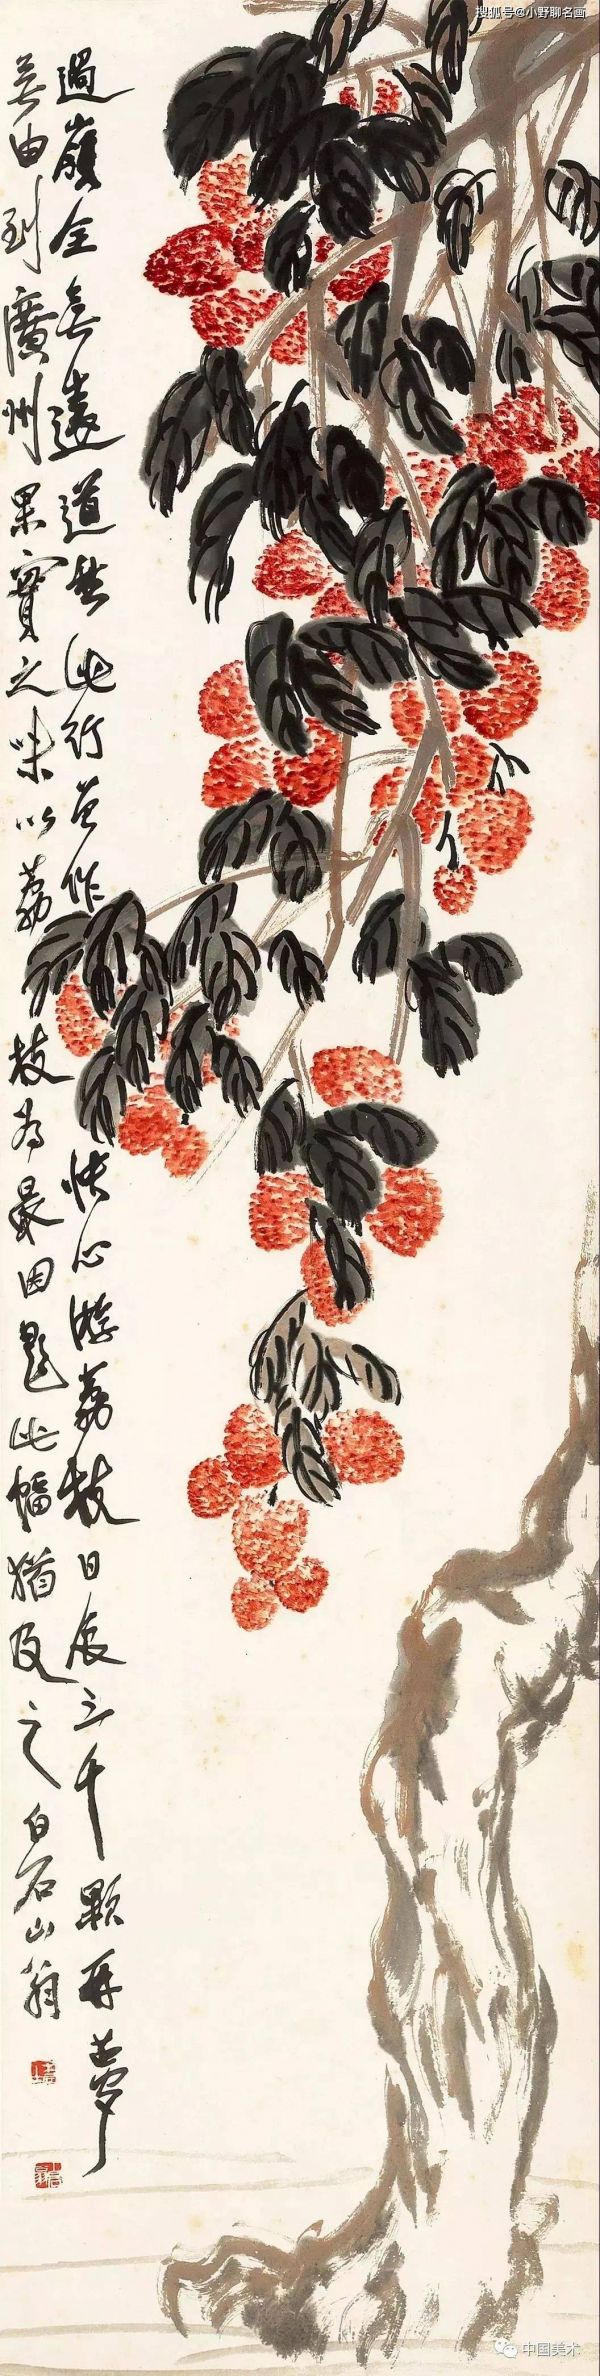 搜狐号@小野聊名画
過嶺全無遠道愁此行曾作快心游荔枝日食三千顆再夢
無由到廣州果實之味以荔枝為最因題此幅猶及之白石山翁
中国美术